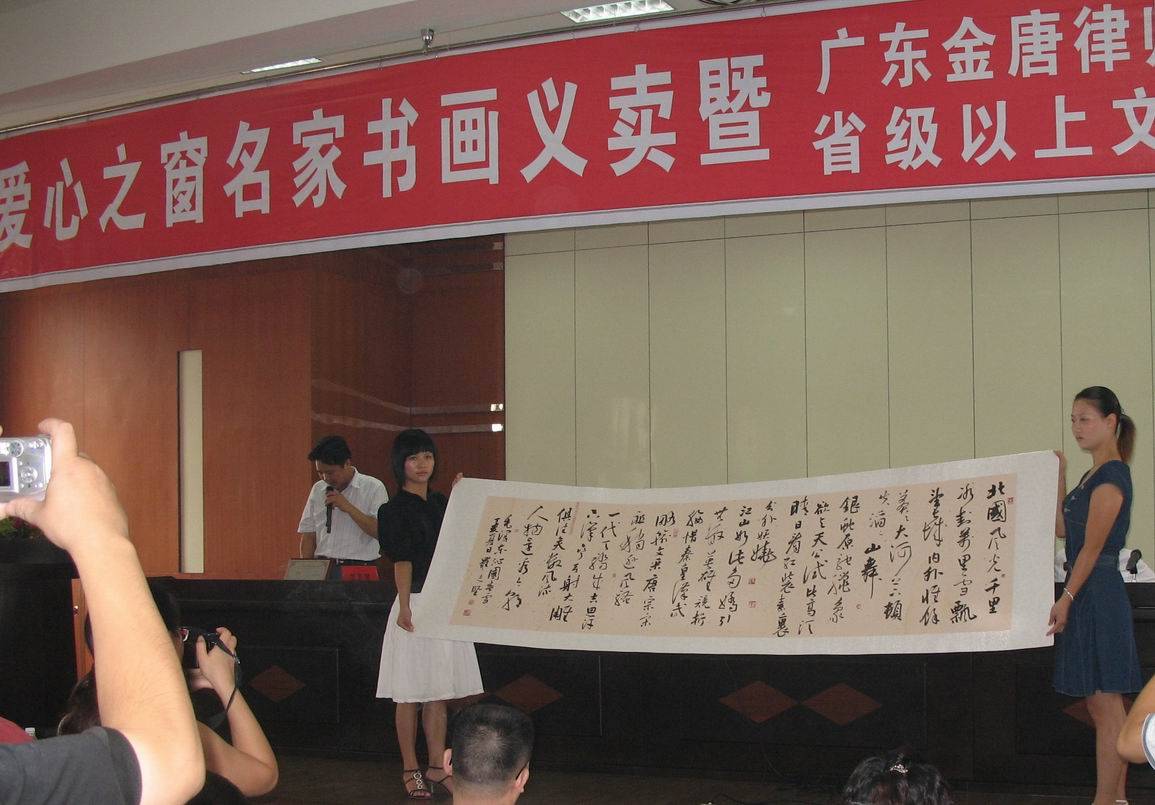 爱心之窗名家书画义卖暨
广东金唐律
省级以上文
北國风光千里
冰封萬里雪飄
望長城内外惟餘
莽莽大河上下頓
失滔滔山舞
銀蛇原馳蠟象
欲与天公试比高须
晴日看红装素裹
分外妖娆
江山如此多嬌引
无数英雄竞折
腰惜秦皇漢武
略输文采唐宗宋
祖稍逊风骚
一代天骄成吉思汗
只識弯弓射大雕
俱往矣数风流
人物还看今朝
毛泽东沁園春雪